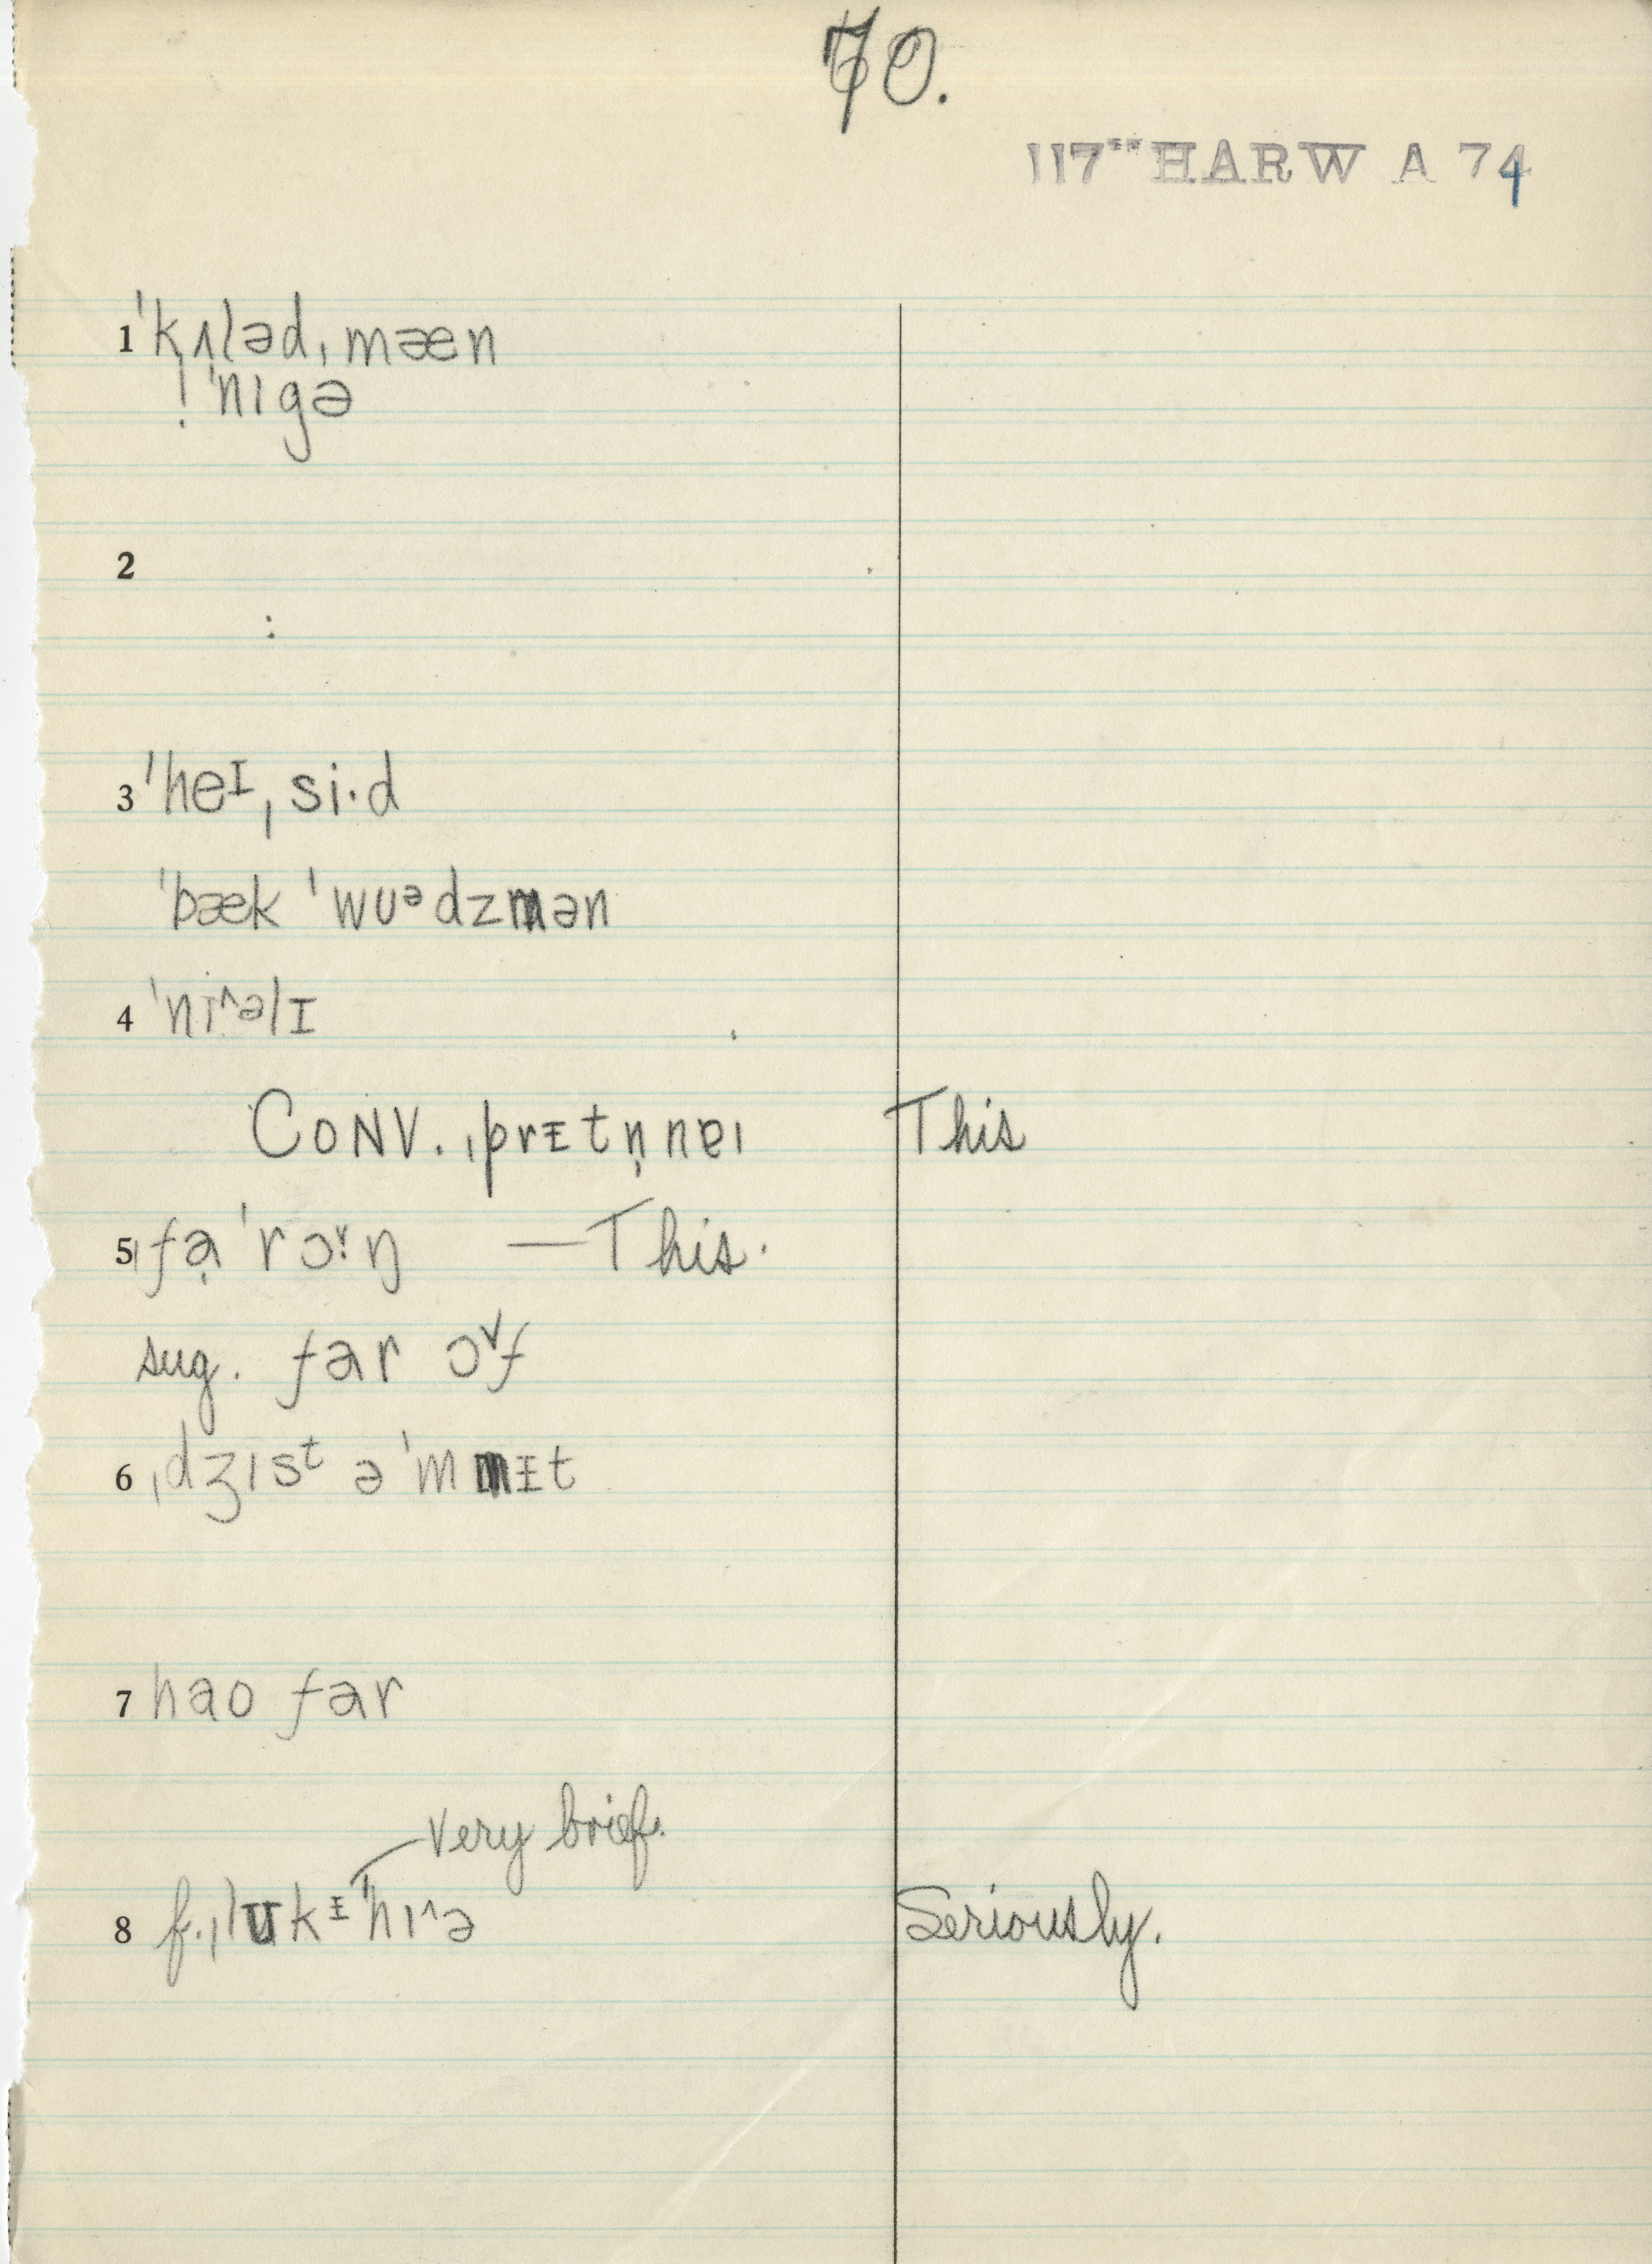 70.
117** HARW A 74
1 ˈkʌləd ˌmæn
! ˈnɪgə
2
:
3 ˈheᴵ ˌsi·d
ˈbæk ˈwʊᵊdzmən
4 ˈni^əlɪ
CONV. ˌprɪtn̩ nɐɪ This
5 ˌfə̣ ˈrɔˇ·ŋ — This.
sug. far ɔˇf
6 ˌdʒɪsᵗ ə ˈmɪt
7 hao far
very brief.
8 f. ˌlʊkᶦ ˈhɪ^ə Seriously.